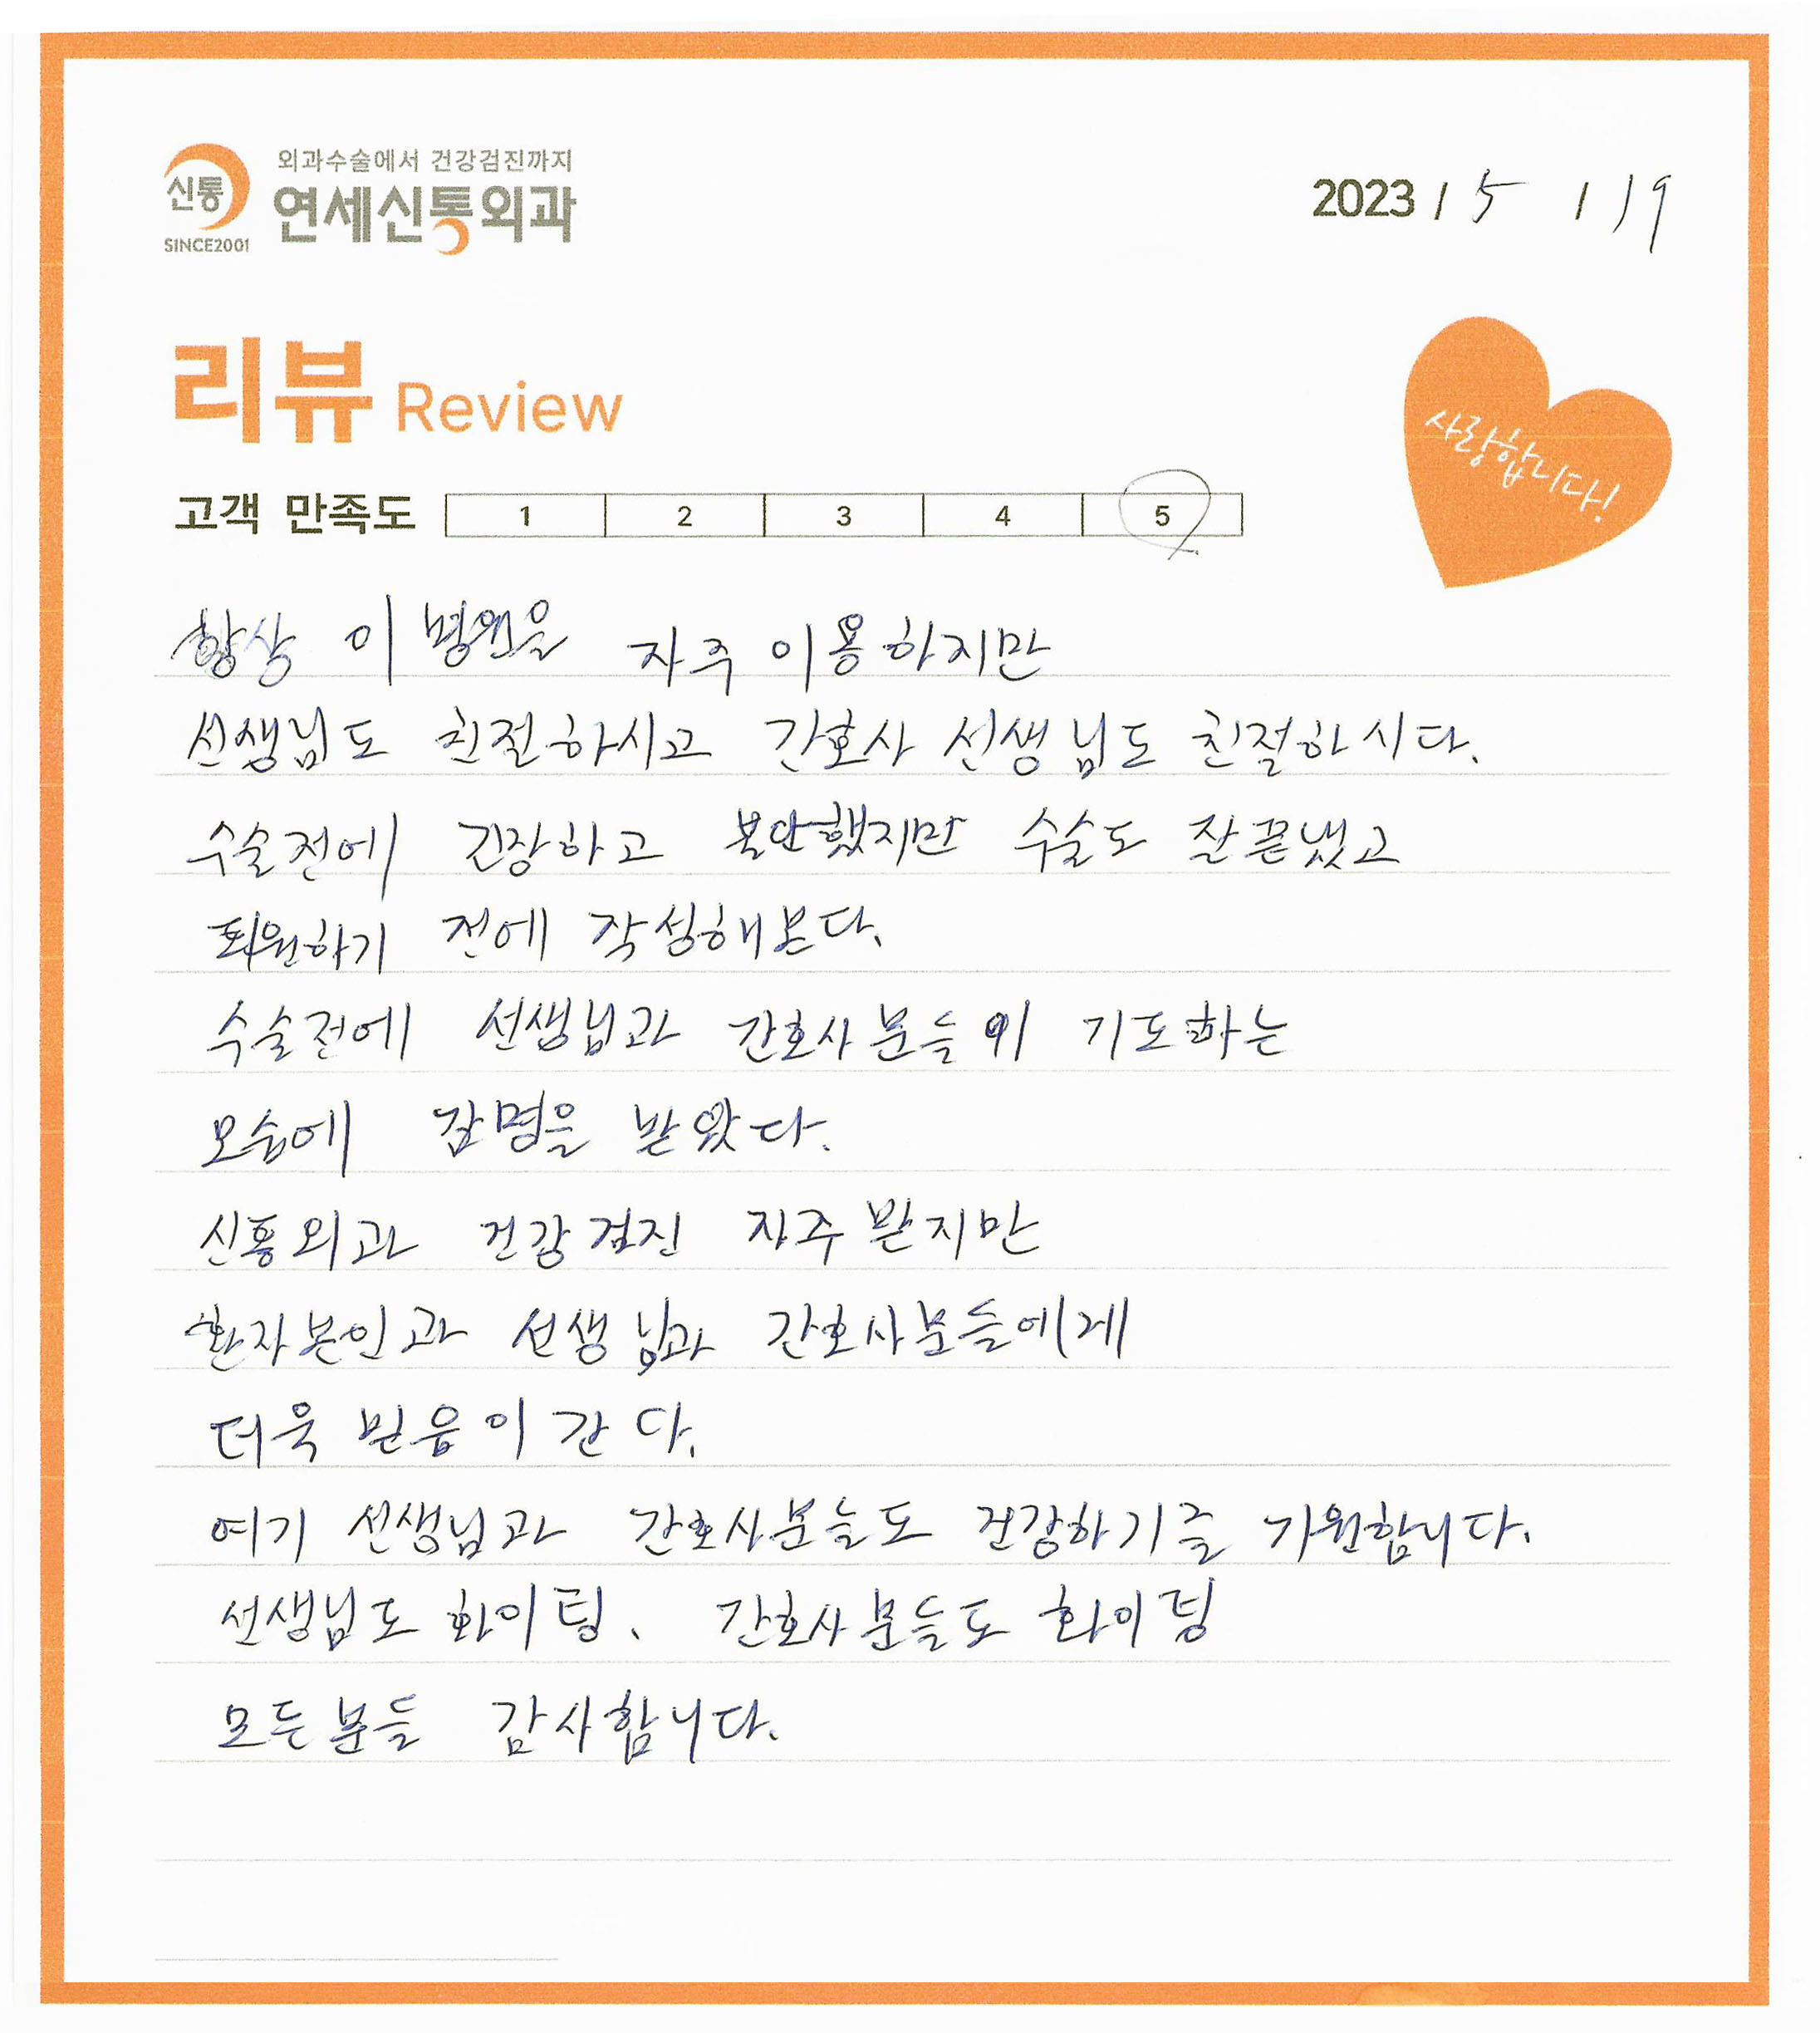 신통
SINCE2001
외과수술에서 건강검진까지
연세신통외과
2023 / 5 / 19
리뷰 Review
사랑합니다!
고객 만족도 1 2 3 4 5
항상 이 병원을 자주 이용하지만
선생님도 친절하시고 간호사 선생님도 친절하시다.
수술전에 긴장하고 불안했지만 수술도 잘끝냈고
퇴원하기 전에 작성해본다.
수술전에 선생님과 간호사분들의 기도하는
모습에 감명을 받았다.
신통외과 건강검진 자주받지만
환자본인과 선생님과 간호사분들에게
더욱 믿음이 간다.
여기 선생님과 간호사분들도 건강하기를 기원합니다.
선생님도 화이팅. 간호사분들도 화이팅
모든분들 감사합니다.